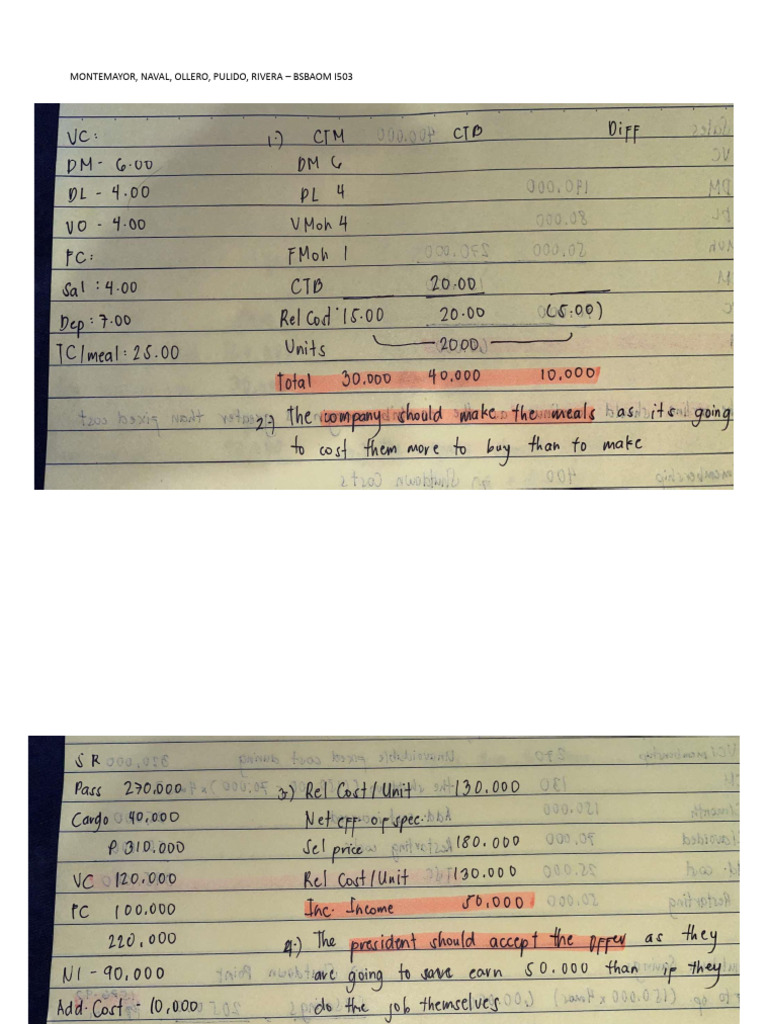 MONTEMAYOR, NAVAL, OLLERO, PULIDO, RIVERA – BSBAOM I503
VC: 1.) CTM CTB Diff
DM - 6.00 DM 6
DL - 4.00 DL 4
VO - 4.00 VMoh 4
FC: FMoh 1
Sal : 4.00 CTB 20.00
Dep : 7.00 Rel Cost 15.00 20.00 (5.00)
TC/meal : 25.00 Units 2000
Total 30.000 40.000 10.000
2.) The company should make the meals as its going
to cost them more to buy than to make
SR
Pass 270,000 3.) Rel Cost/Unit 130.000
Cargo 40,000 Net eff. of spec.
P 310.000 Sel price 180.000
VC 120.000 Rel Cost/Unit 130.000
FC 100.000 Inc. Income 50,000
220,000 4.) The president should accept the offer as they
NI - 90.000 are going to earn 50.000 than if they
Add. Cost - 10,000 do the job themselves